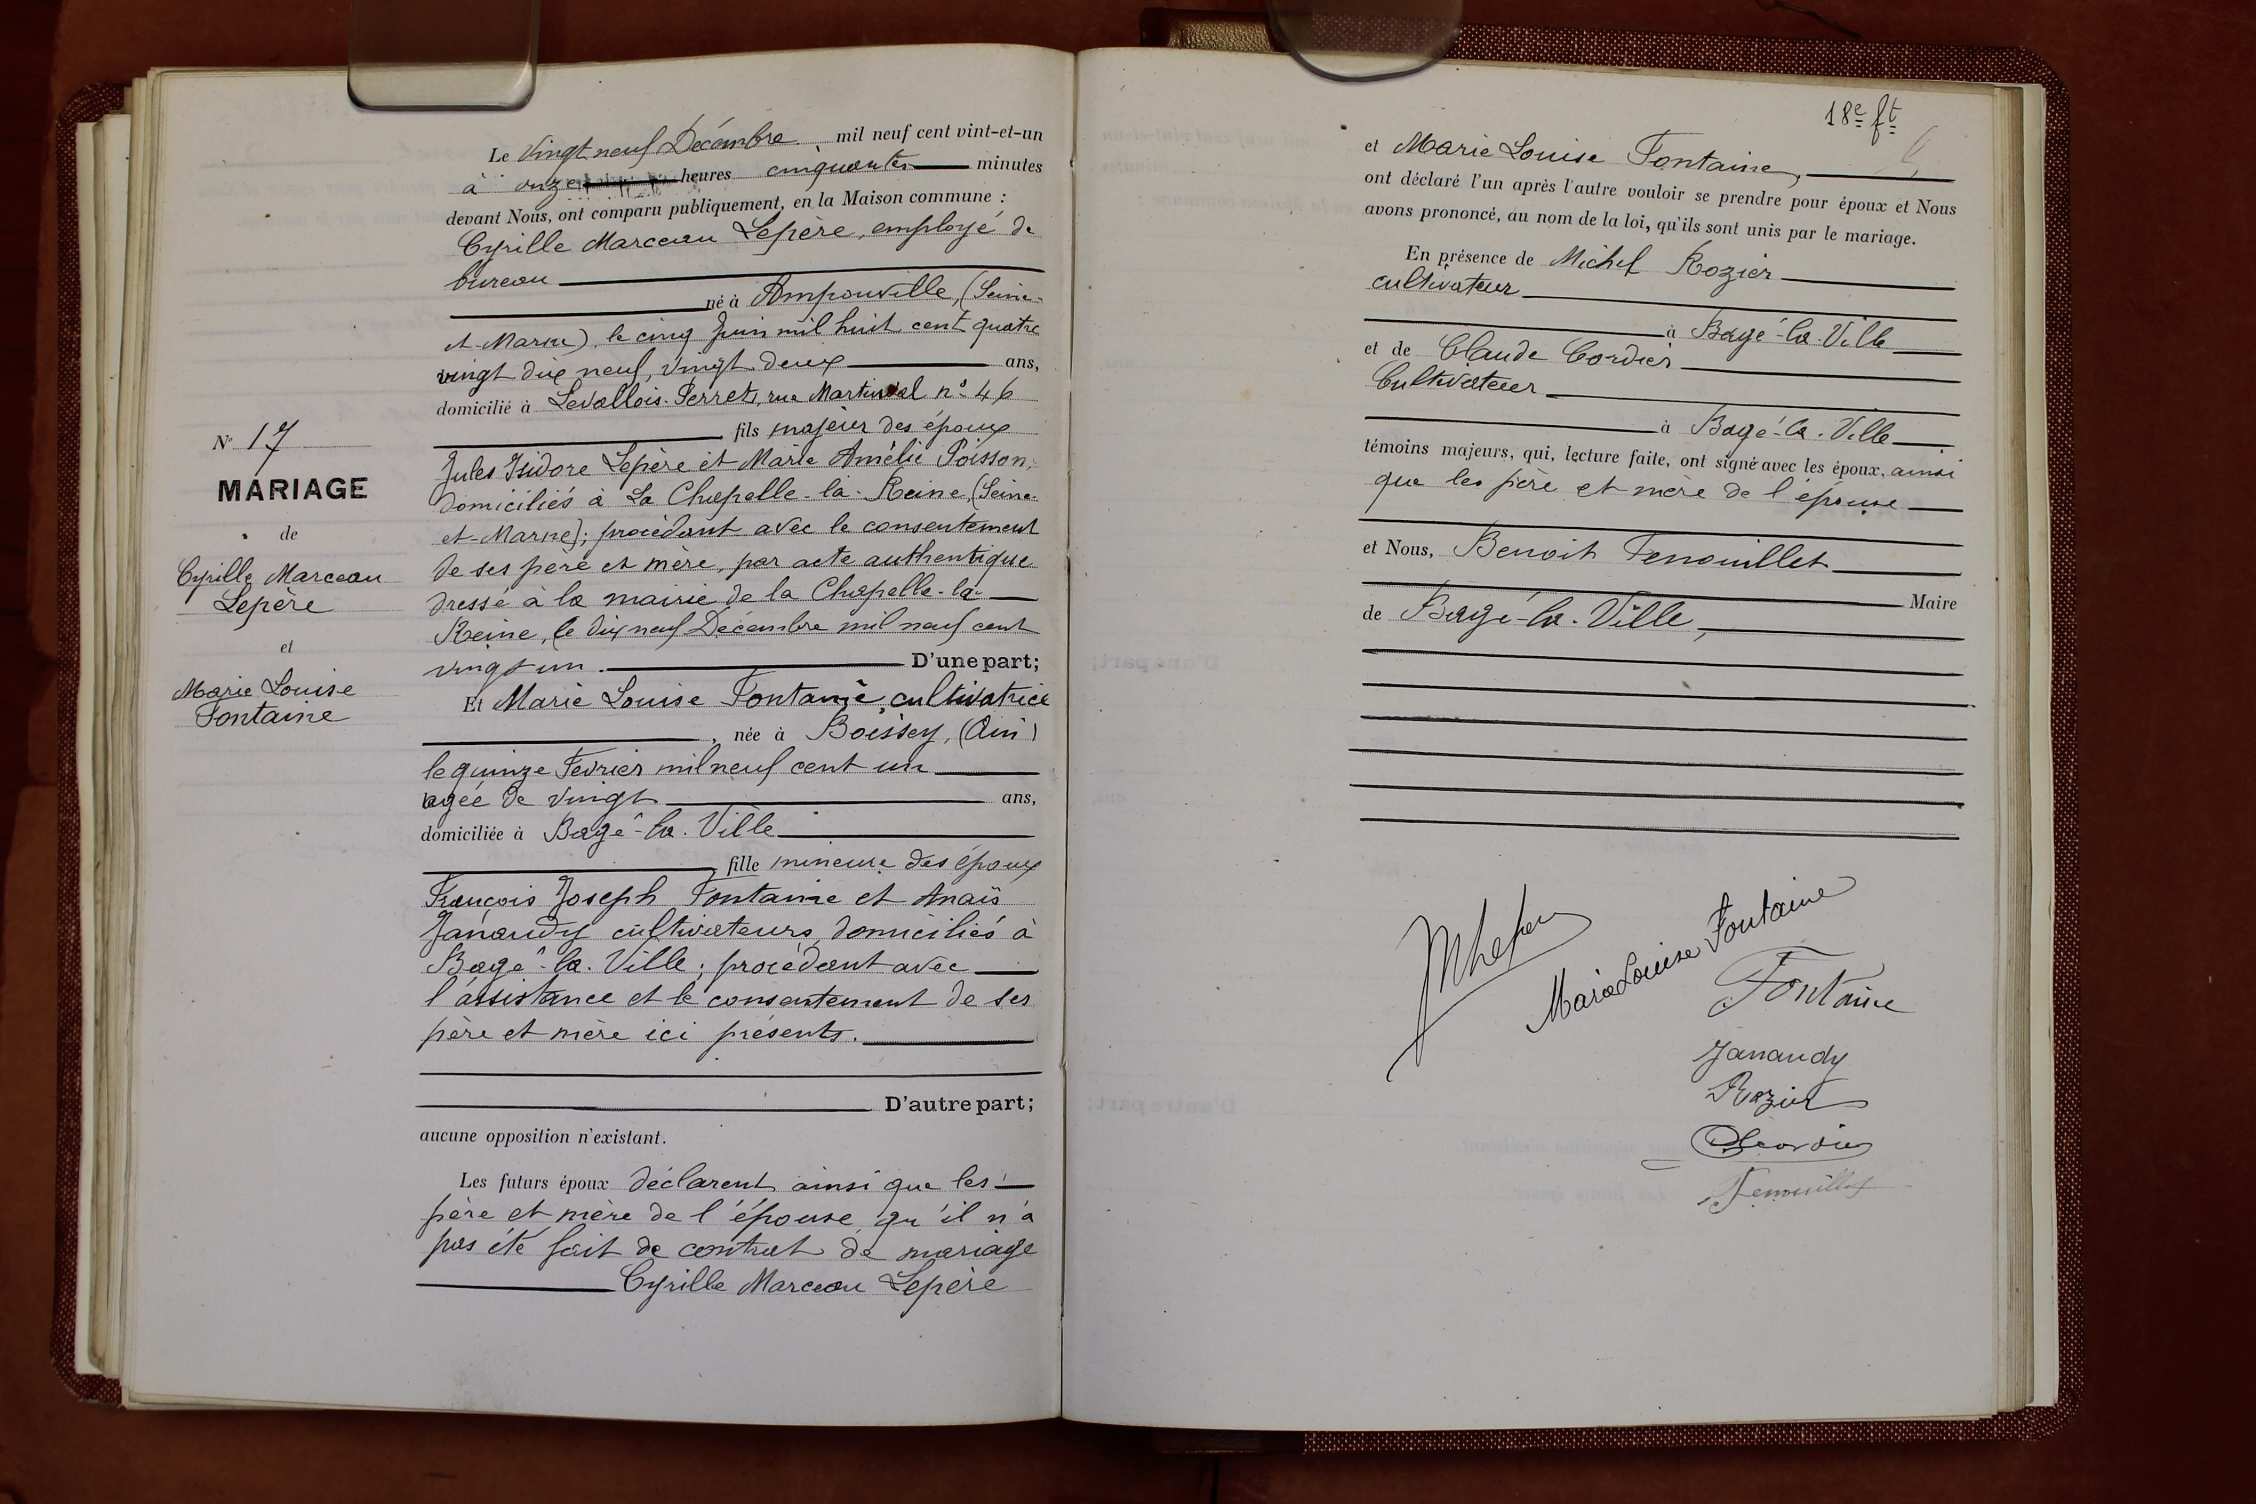 Le Vingt neuf Décembre mil neuf cent vint-et-un
à onze heures cinquante minutes
devant Nous, ont comparu publiquement, en la Maison commune :
Cyrille Marceau Lepère, employé de
bureau
né à Ampouville, (Seine-
et-Marne), le cinq Juin mil huit cent quatre
vingt dix neuf, vingt deux ans,
domicilié à Levallois-Perret, rue Martinval nº 46
fils majeur des époux
Jules Isidore Lepère et Marie Amélie Poisson,
domiciliés à La Chapelle-la-Reine (Seine-
et-Marne); procédant avec le consentement
de ses père et mère, par acte authentique
dressé à la mairie de la Chapelle-la-
Reine, le dix neuf Décembre mil neuf cent
vingt un. D'une part;
Et Marie Louise Fontaine, cultivatrice
, née à Boissey, (Ain)
le quinze Fevrier mil neuf cent un
agée de vingt ans,
domiciliée à Bagé-la-Ville
fille mineure des époux
François Joseph Fontaine et Anaïs
Janaudy cultivateurs, domiciliés à
Bagé-la-Ville; procédant avec
l'assistance et le consentement de ses
père et mère ici présents.
D'autre part;
aucune opposition n'existant.
Les futurs époux déclarent ainsi que les
père et mère de l'épouse qu'il n'a
pas été fait de contrat de mariage
Cyrille Marceau Lepère
Nº 17
MARIAGE
de
Cyrille Marceau
Lepère
et
Marie Louise
Fontaine
18e ft
et Marie Louise Fontaine,
ont déclaré l'un après l'autre vouloir se prendre pour époux et Nous
avons prononcé, au nom de la loi, qu'ils sont unis par le mariage.
En présence de Michel Rozier
cultivateur
à Bagé-la-Ville
et de Claude Cordier
Cultivateur
à Bagé-la-Ville
témoins majeurs, qui, lecture faite, ont signé avec les époux, ainsi
que les père et mère de l'épouse
et Nous, Benoit Fenouillet
Maire
de Bagé-la-Ville,
MLepère
Marie Louise Fontaine
Fontaine
Janaudy
Rozier
Cordier
Fenouillet